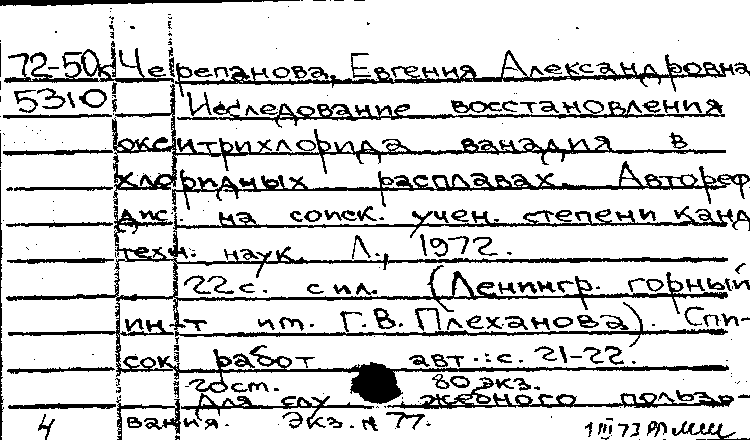 72-50к Черепанова, Евгения Александровна
5310 Исследование восстановления
окситрихлорида ванадия в
хлоридных расплавах. Автореф
дис. на соиск. учен. степени канд
техн. наук. Л., 1972.
22 с. с ил. (Ленингр. горный
ин-т им. Г.В. Плеханова). Спи-
сок работ авт.: с. 21-22.
20 ст. 80 экз.
Для служебного пользо-
4 вания. Экз. № 77.
1 III 73